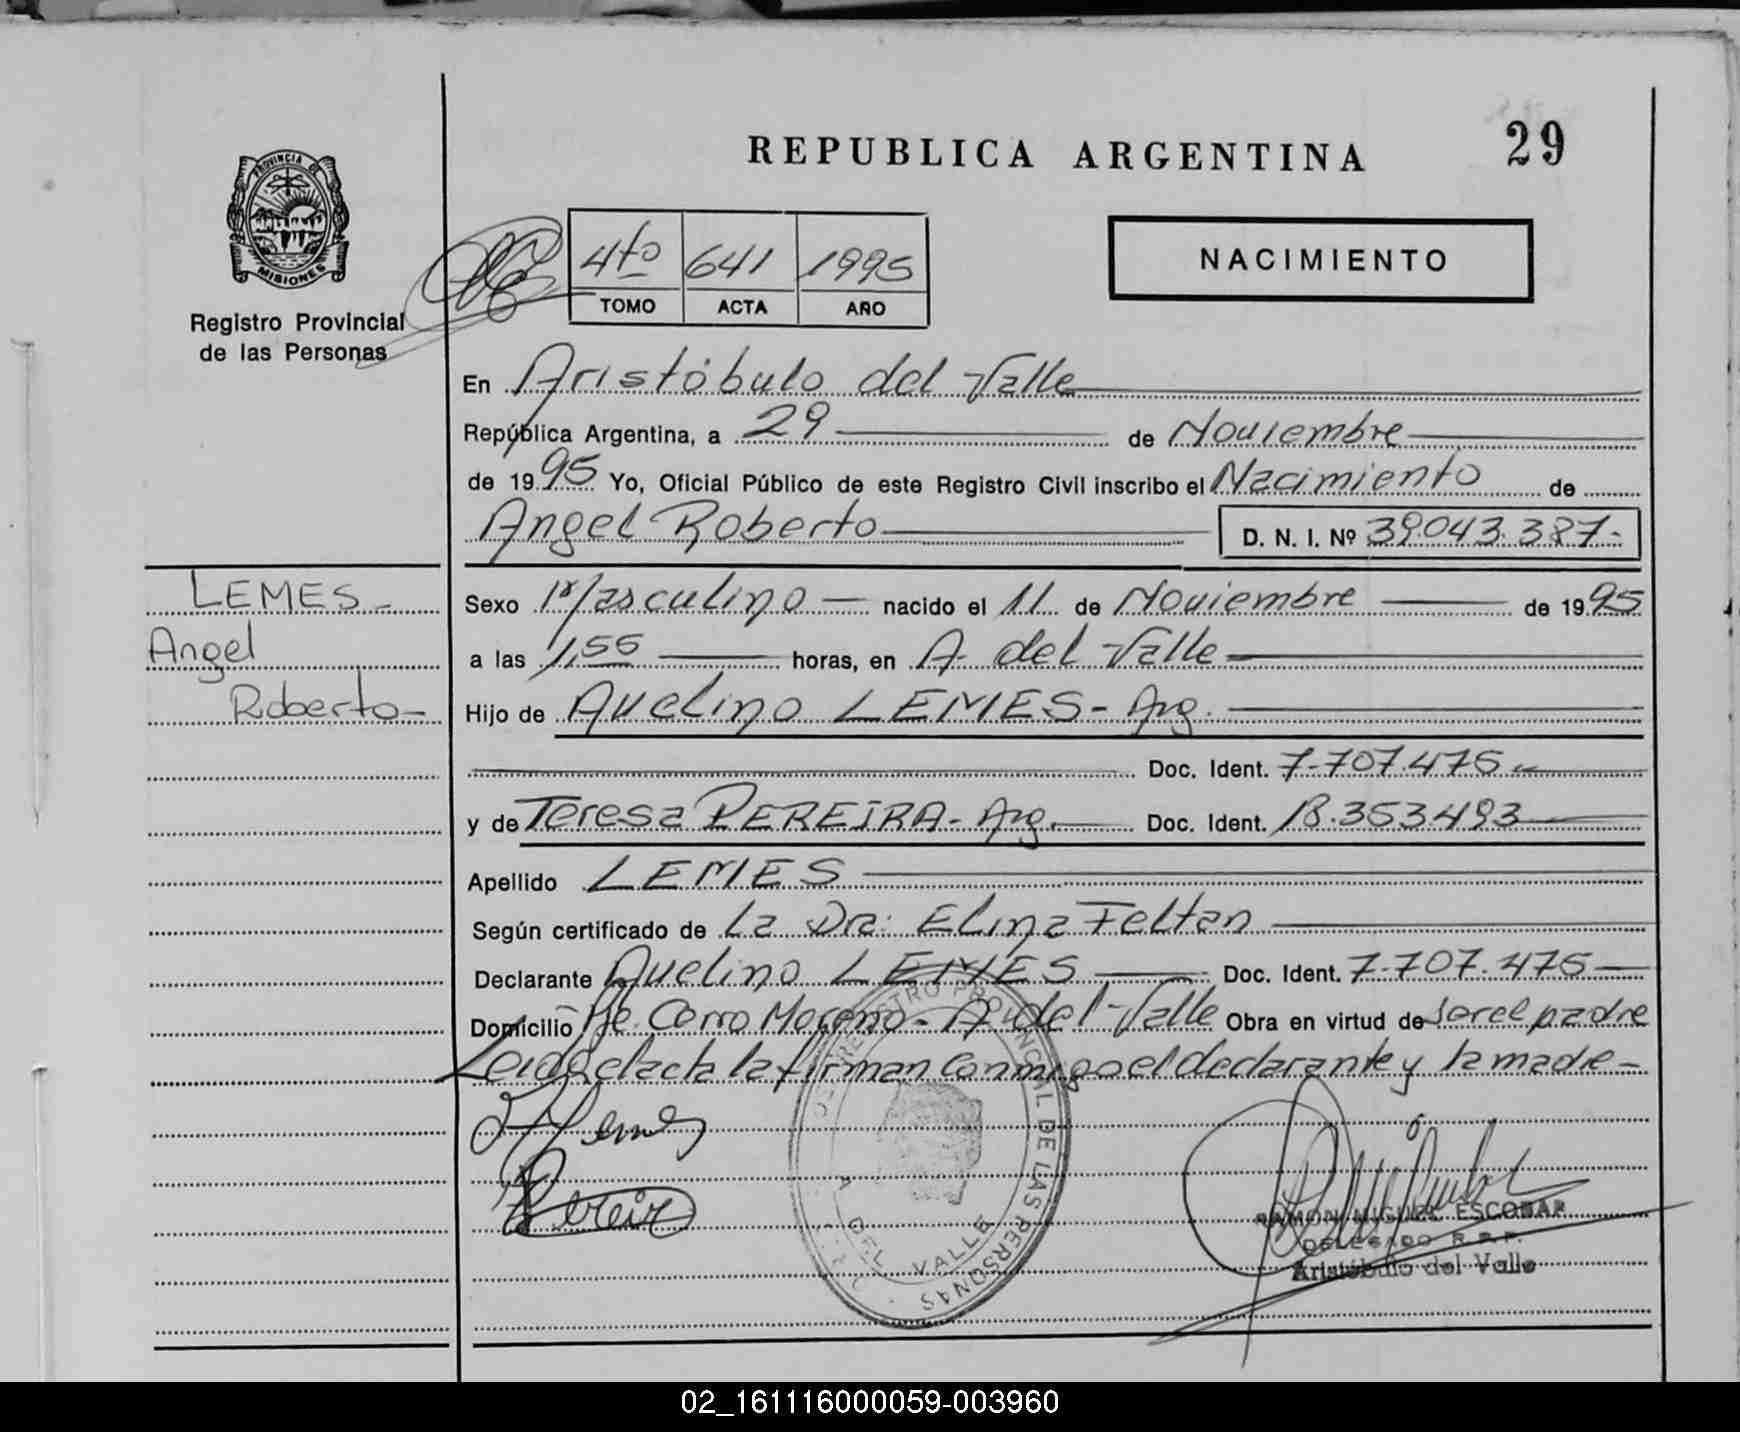 REPUBLICA ARGENTINA
29
PROVINCIA DE
MISIONES
Registro Provincial
de las Personas
4to 641 1995
TOMO ACTA AÑO
NACIMIENTO
En Aristóbulo del Valle
República Argentina, a 29 de Noviembre
de 1995 Yo, Oficial Público de este Registro Civil inscribo el Nacimiento de
Angel Roberto D. N. I. Nº 39.043.387-
LEMES-
Angel
Roberto-
Sexo Masculino nacido el 11 de Noviembre de 1995
a las 1,55 horas, en A. del Valle
Hijo de Avelino LEMES - Arg.
Doc. Ident. 7.707.475
y de Teresa PEREIRA - Arg. Doc. Ident. 18.353.493
Apellido LEMES
Según certificado de La Dra: Elina Feltan
Declarante Avelino LEMES Doc. Ident. 7.707.475
Domicilio Cerro Moreno - A. del Valle Obra en virtud de ser el padre
Leida el acta la firman conmigo el declarante y la madre -
Lemes
Pereira
REGISTRO PROVINCIAL DE LAS PERSONAS
A. DEL VALLE
RAMON MIGUEL ESCOBAR
DELEGADO R.P.P.
Aristóbulo del Valle
02_161116000059-003960